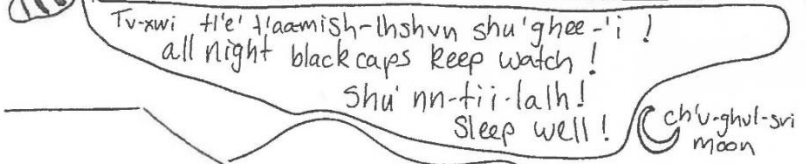 Tv-xwi tl'e' t'aamish-lhshvn shu'ghee-'i !
all night blackcaps keep watch !
Shu' nn-tii-lalh!
Sleep well !
ch'v-ghvl-sri
moon